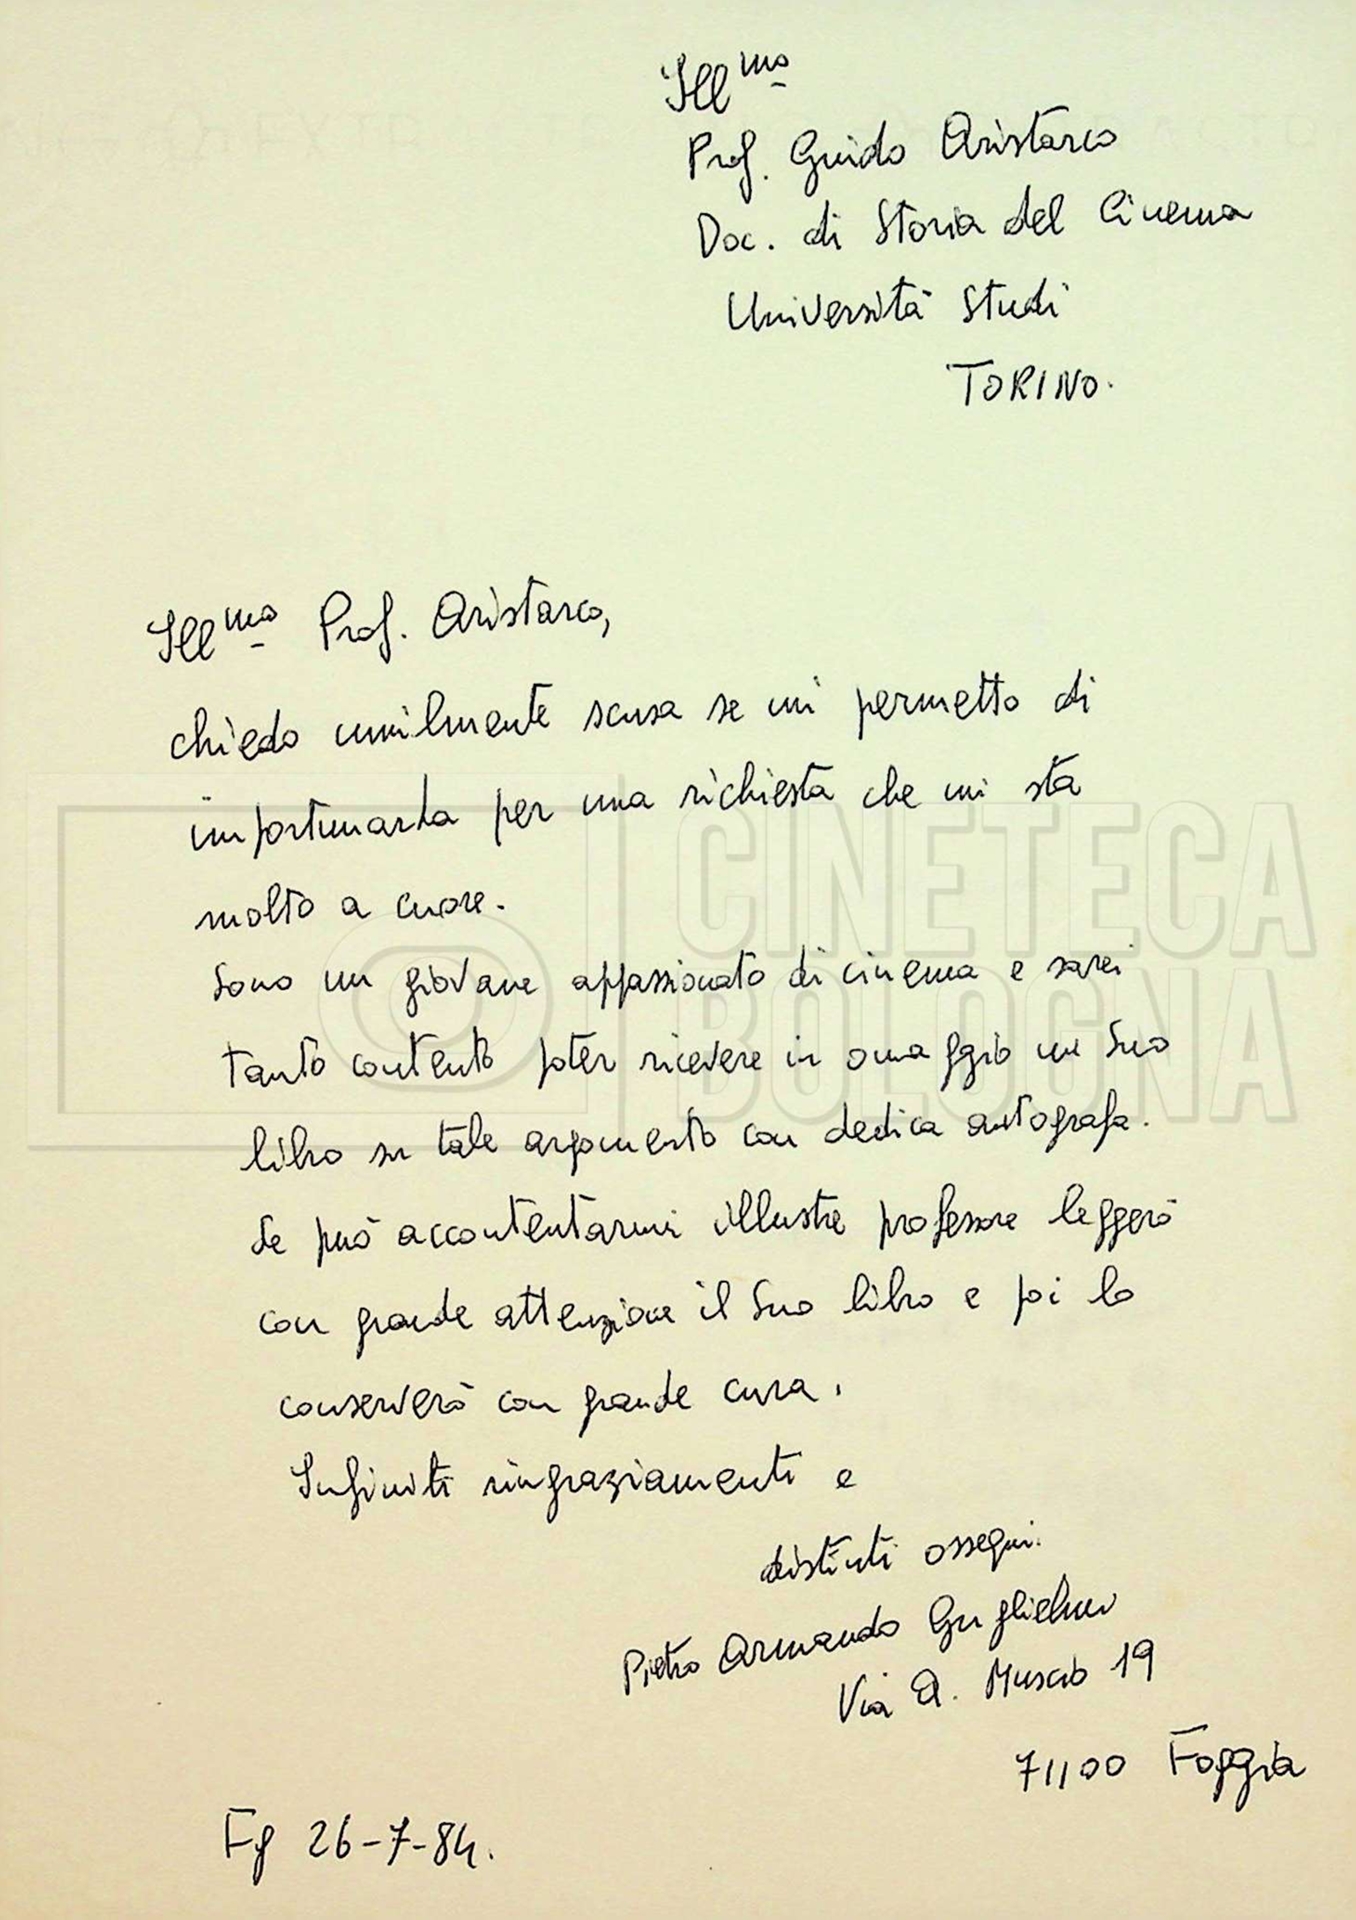 Ill.mo
Prof. Guido Aristarco
Doc. di Storia del Cinema
Università Studi
TORINO.
Ill.mo Prof. Aristarco,
chiedo umilmente scusa se mi permetto di
importunarLa per una richiesta che mi sta
molto a cuore.
Sono un giovane appassionato di cinema e sarei
tanto contento poter ricevere in omaggio un Suo
libro su tale argomento con dedica autografa.
Se può accontentarmi illustre professore leggerò
con grande attenzione il Suo libro e poi lo
conserverò con grande cura.
Infiniti ringraziamenti e
distinti ossequi.
Pietro Armando Guglielmi
Via A. Muscio 19
71100 Foggia
Fg 26-7-84.
CINETECA
BOLOGNA